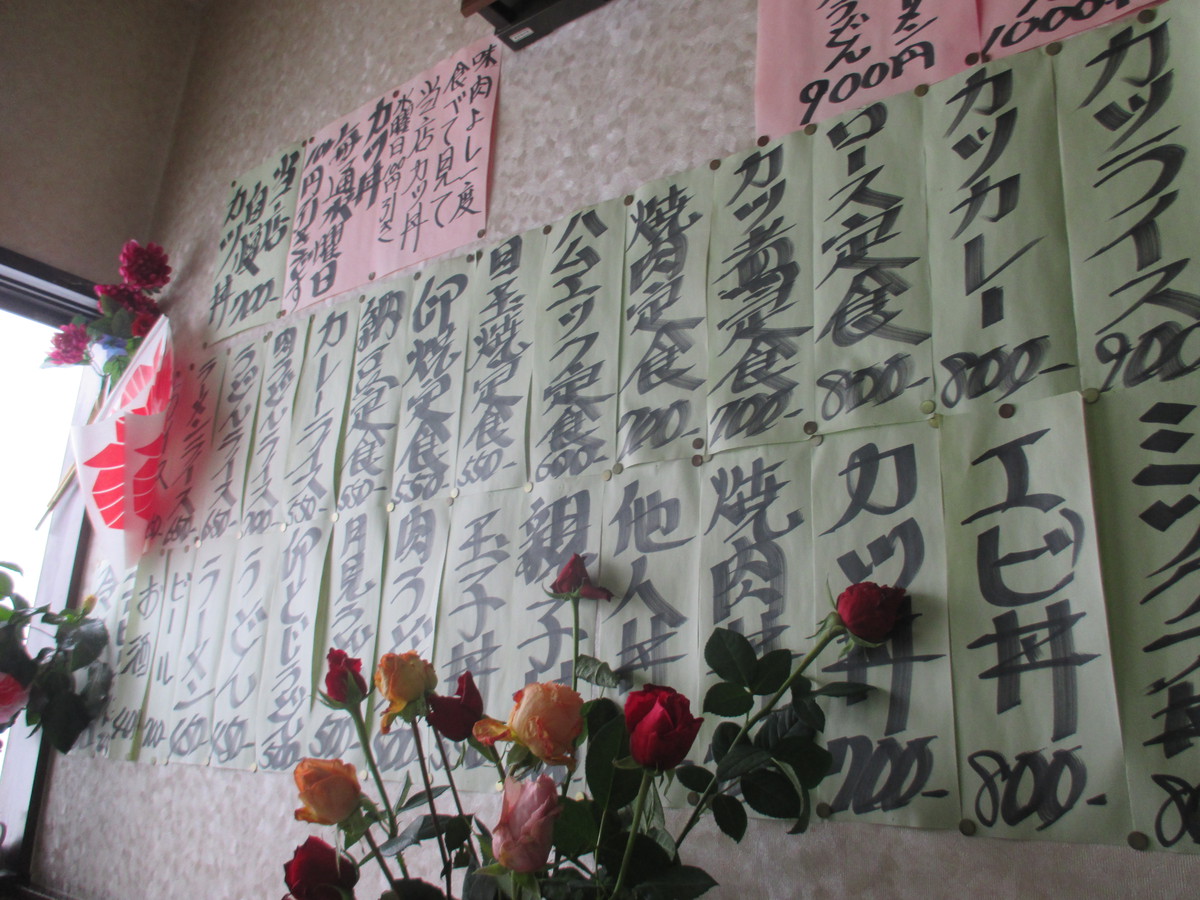 うどん
900円
1000円
味肉よし一度
食べて見て
当店カツ丼
水曜日100円引き
カツ丼
毎週水曜日
100円引きです
当店
自慢
カツ丼 700-
カツライス 900
カツカレー 800-
ロース定食 800-
カツ煮定食 700-
焼肉定食 700-
ハムエッグ定食 600-
目玉焼定食 550-
卵焼定食 550-
納豆定食 550-
カレーライス 550-
肉うどんライス 700-
うどんライス 650-
ラーメンライス 650-
エビ丼 800-
カツ丼 700-
焼肉丼
他人丼
親子丼
玉子丼
肉うどん
月見うどん 500-
卵とじうどん 500
うどん 450-
ラーメン
ビール
お酒